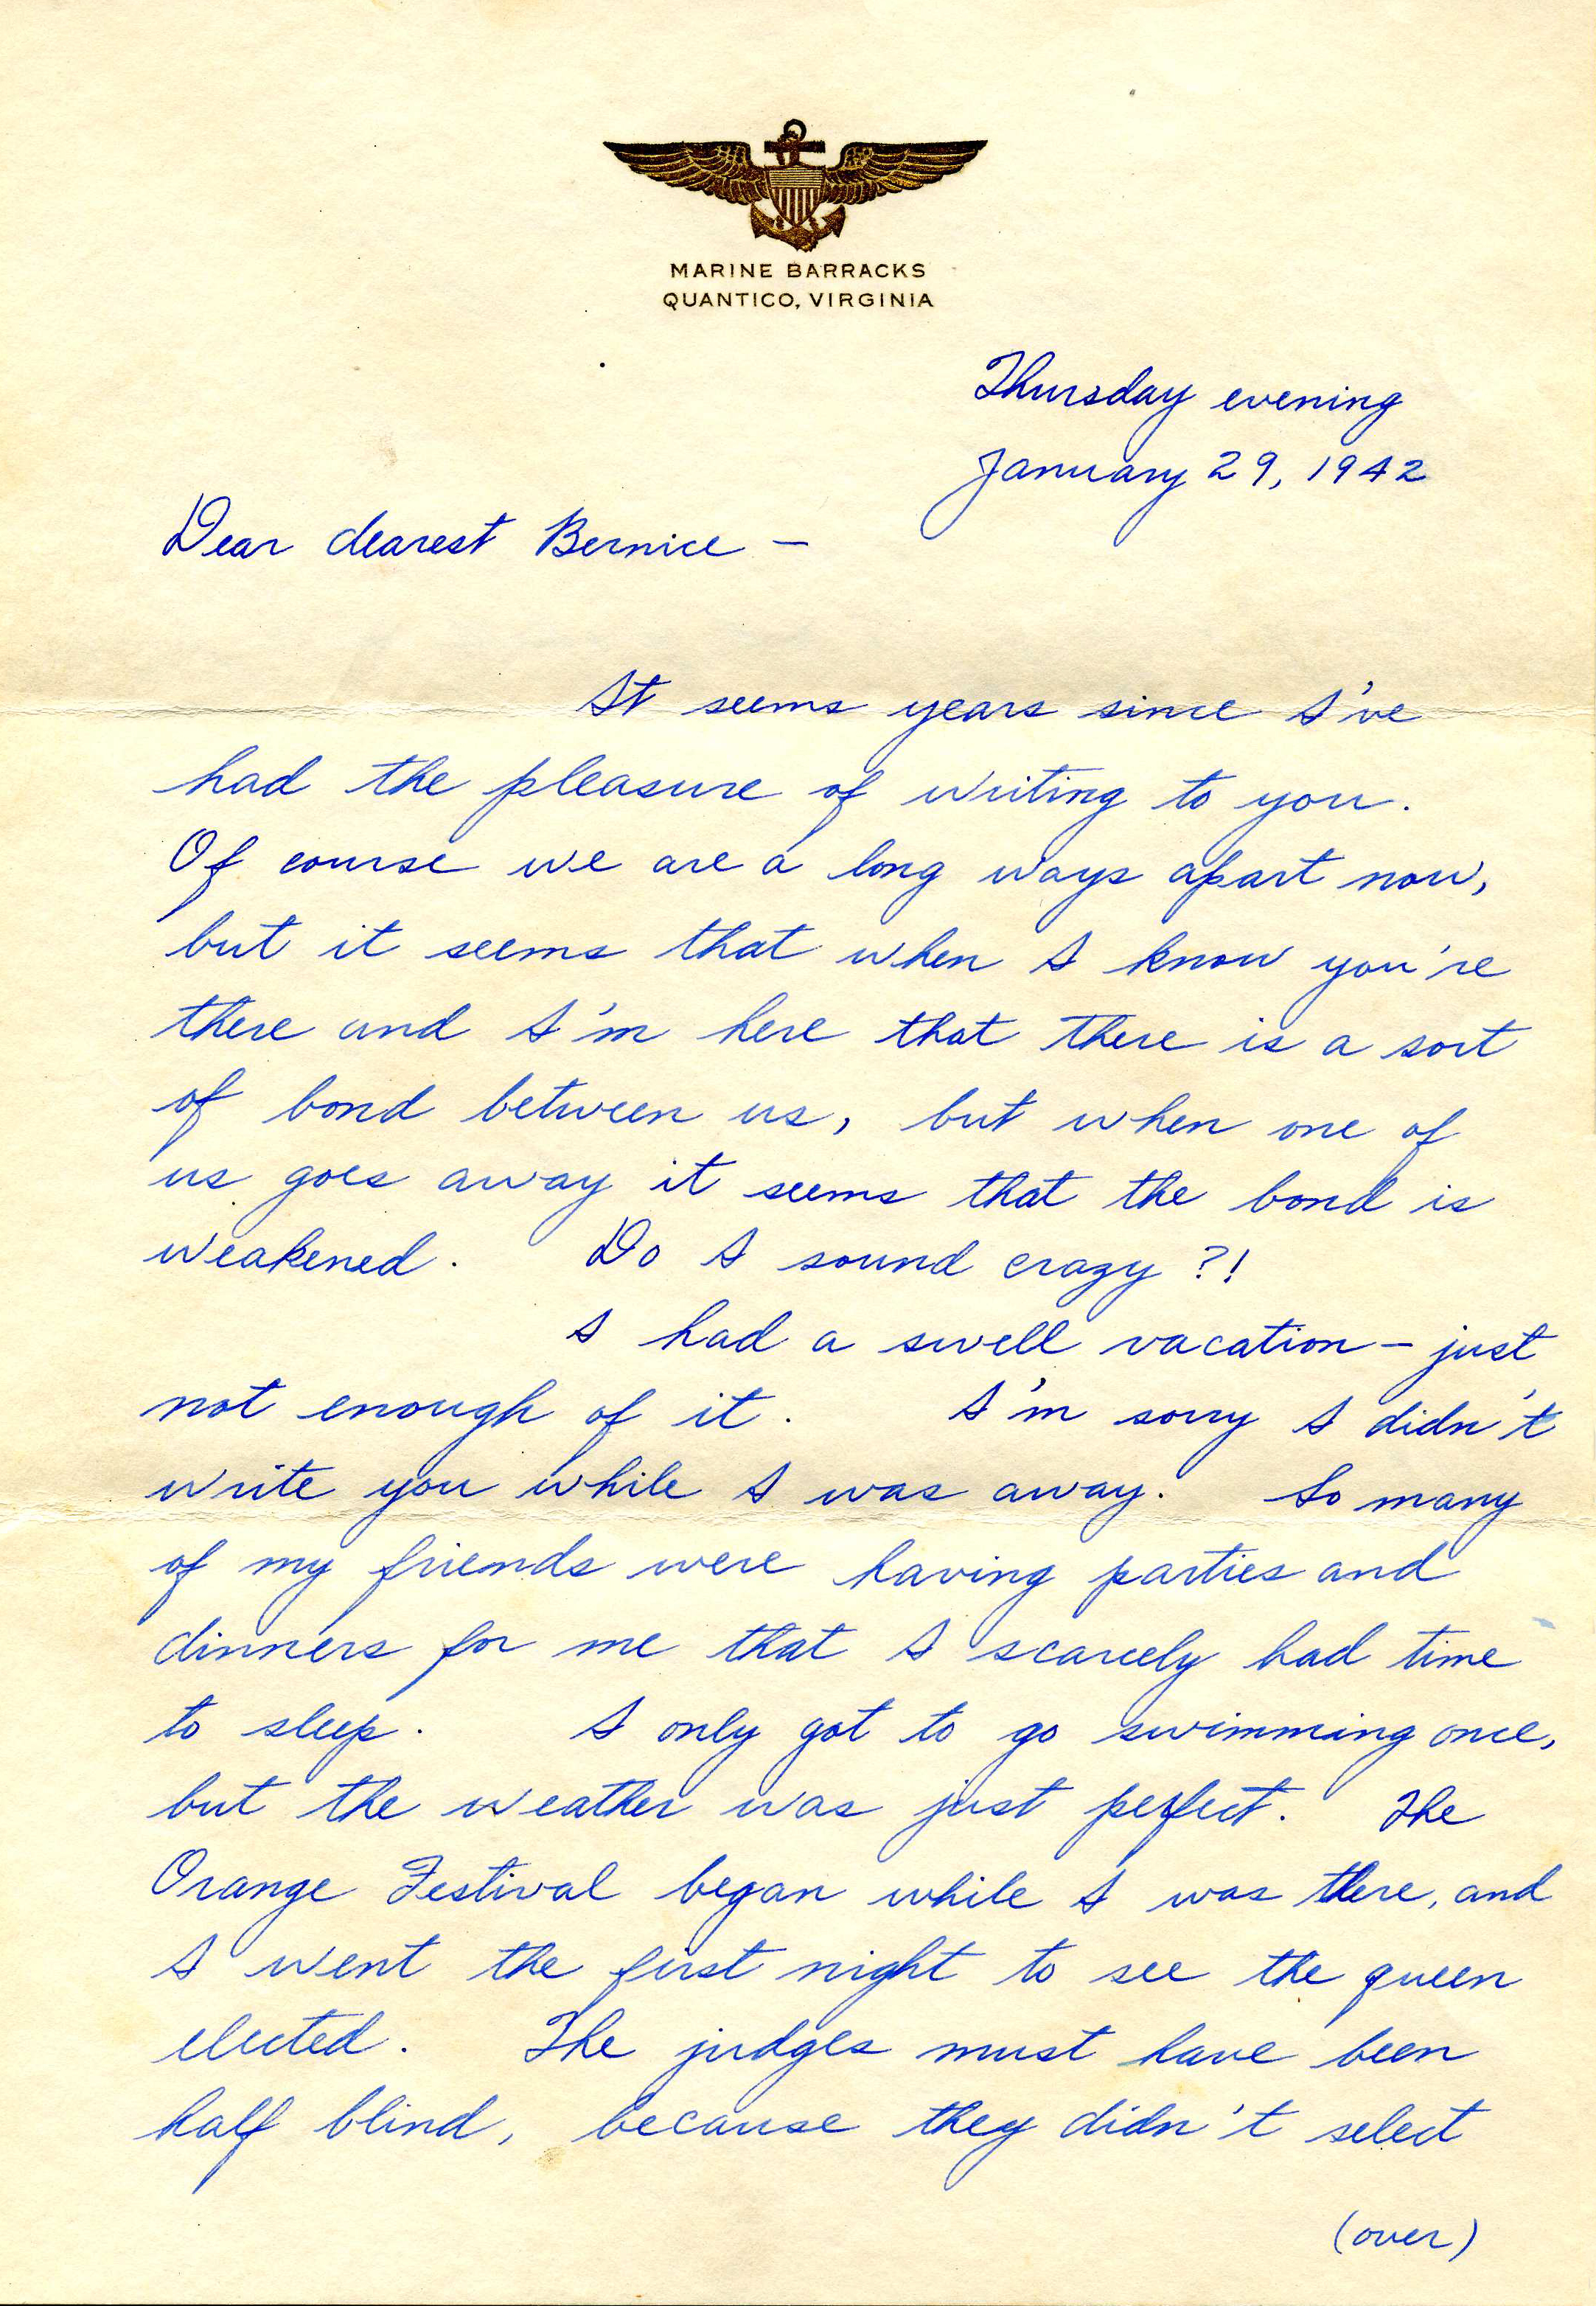 MARINE BARRACKS
QUANTICO, VIRGINIA
Thursday evening
January 29, 1942
Dear dearest Bernice —
It seems years since I've
had the pleasure of writing to you.
Of course we are a long ways apart now,
but it seems that when I know you're
there and I'm here that there is a sort
of bond between us, but when one of
us goes away it seems that the bond is
weakened. Do I sound crazy?!
I had a swell vacation — just
not enough of it. I'm sorry I didn't
write you while I was away. So many
of my friends were having parties and
dinners for me that I scarcely had time
to sleep. I only got to go swimming once,
but the weather was just perfect. The
Orange Festival began while I was there, and
I went the first night to see the queen
elected. The judges must have been
half blind, because they didn't select
(over)